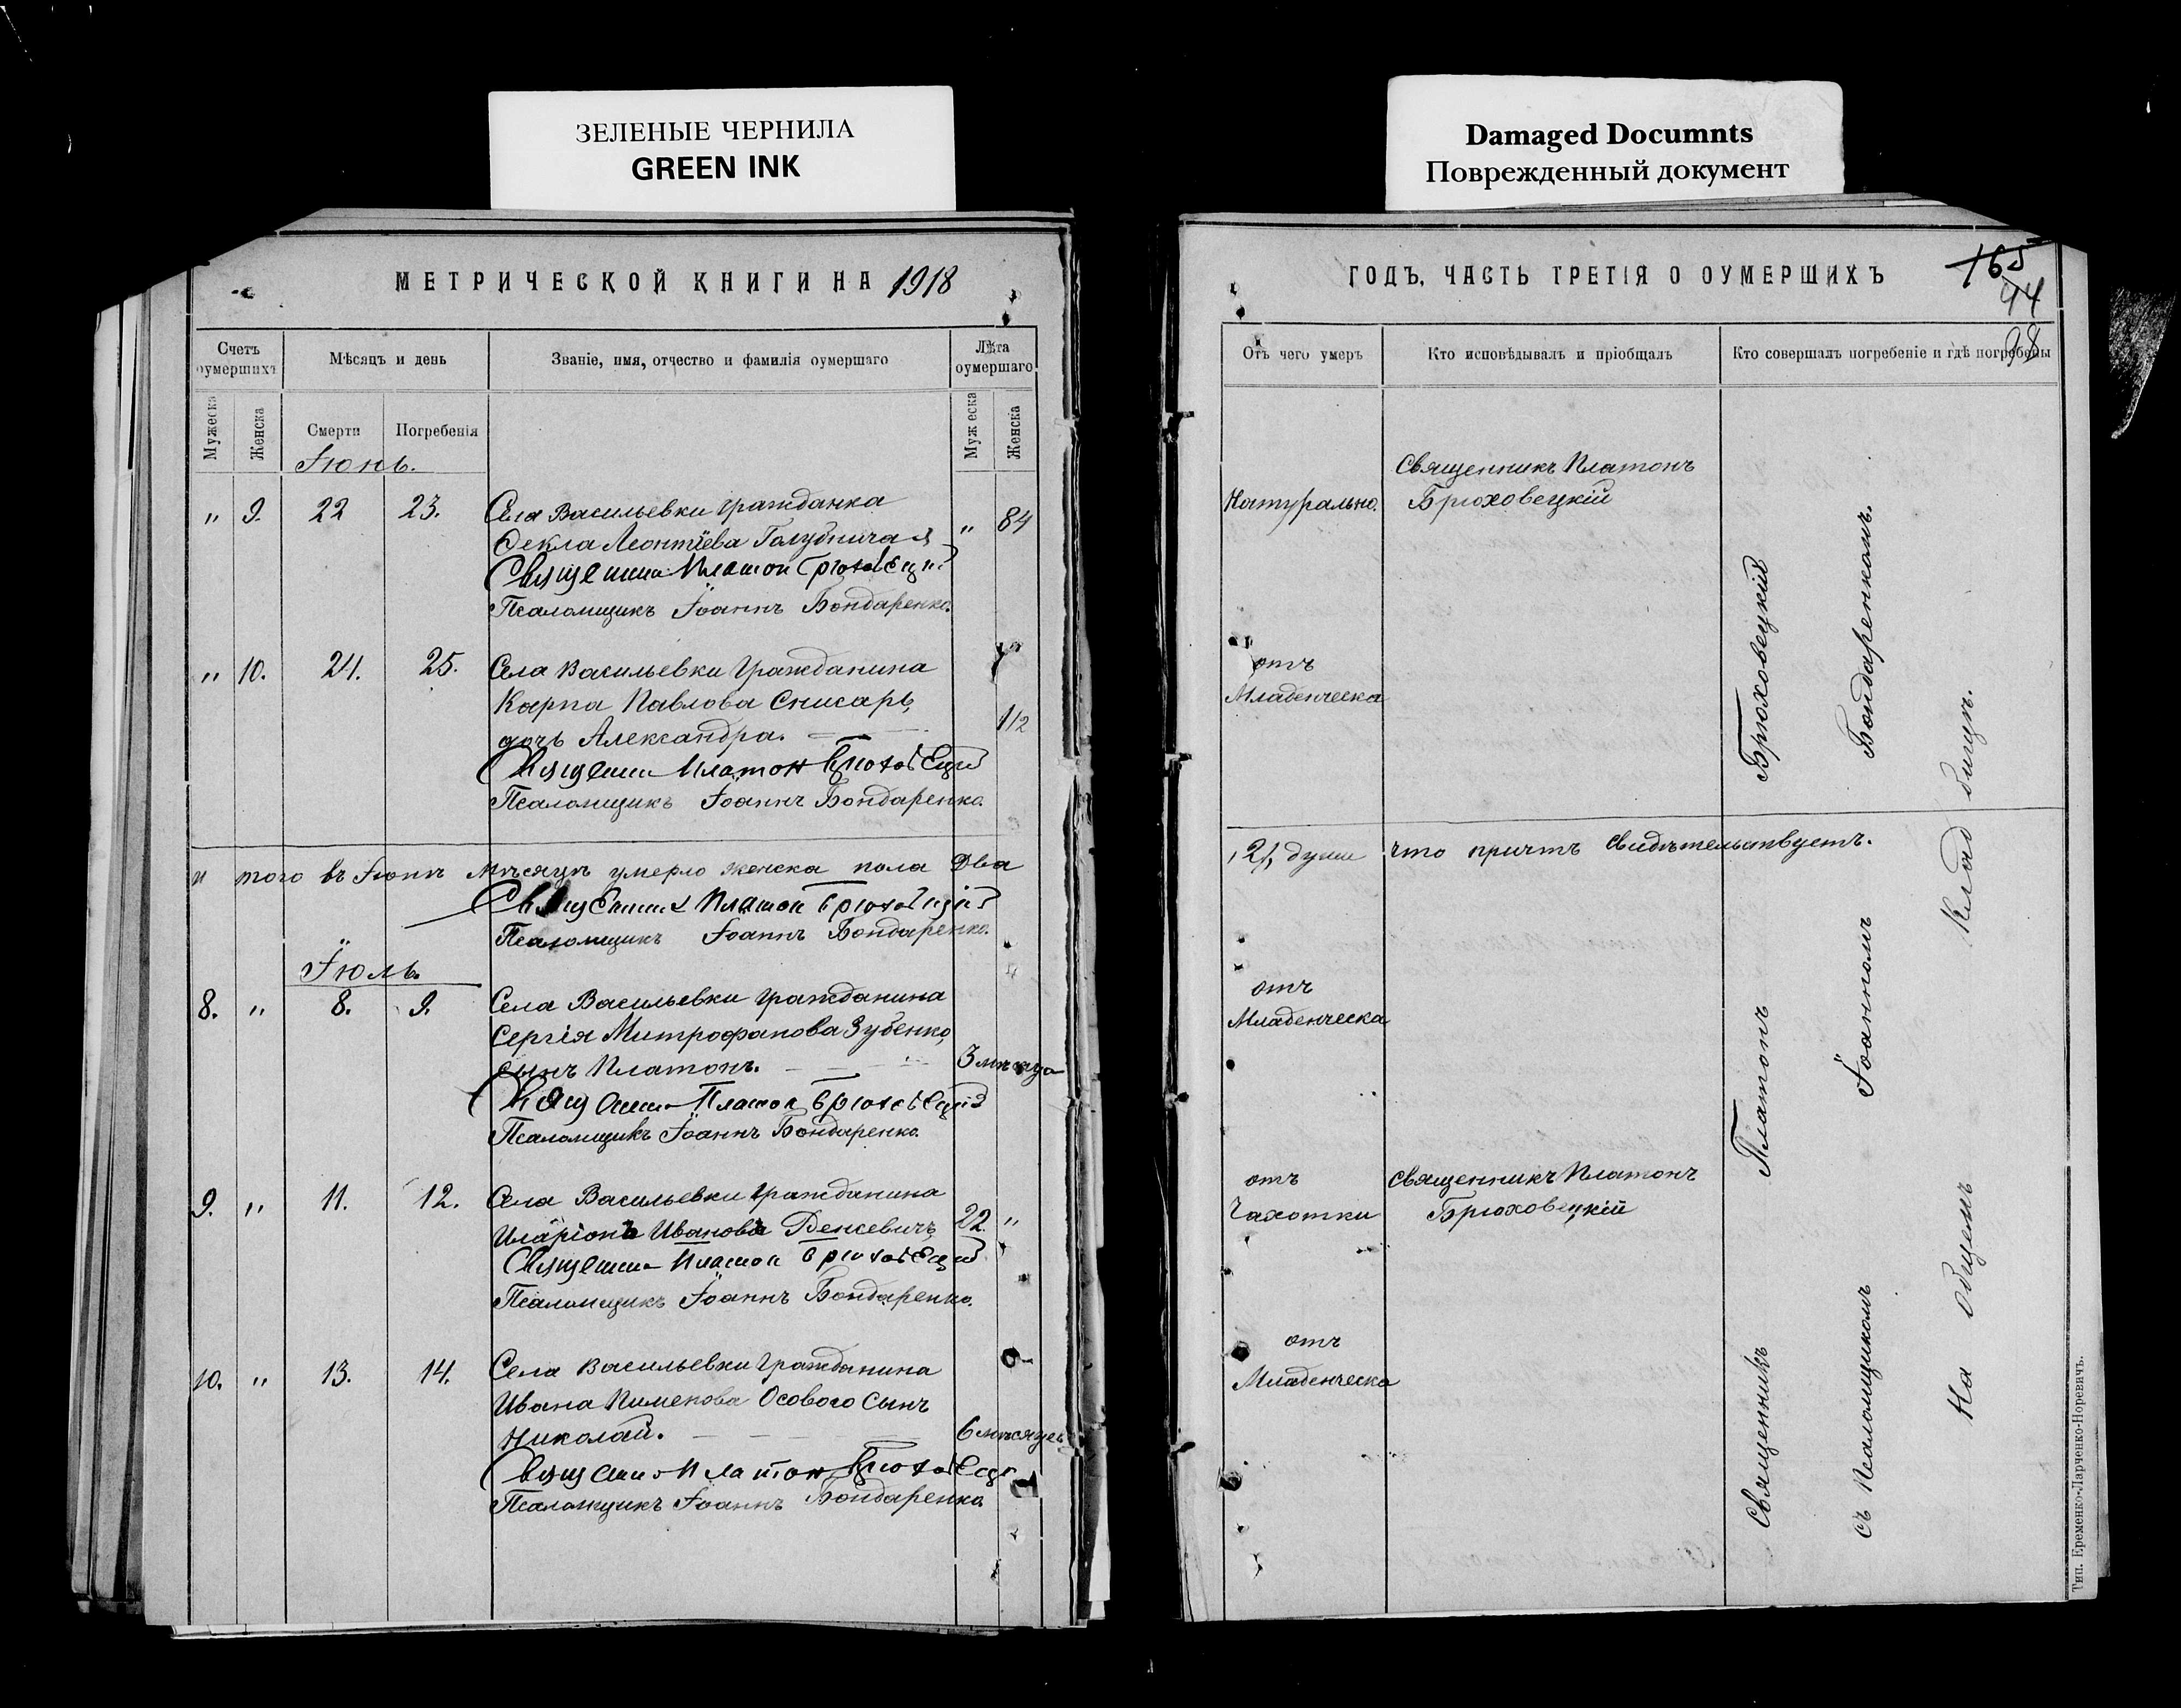 ЗЕЛЕНЫЕ ЧЕРНИЛА
GREEN INK
МЕТРИЧЕСКОЙ КНИГИ НА 1918
Счетъ оумершихъ
Мѣсяцъ и день
Званіе, имя, отчество и фамилія оумершаго
Лѣта оумершаго
Мужеска
Женска
Смерти
Погребенія
Мужеска
Женска
Іюнь.
" 9. 22 23. Села Васильевки гражданка " 84
Ѳекла Леонтіева Голубничая
Священник Платон Брюховецкий
Псаломщикъ Іоаннъ Бондаренко.
" 10. 24. 25. Села Васильевки Гражданина
Карпа Павлова Снисарь, 1/2
дочь Александра.
Священник Платон Брюховецкий
Псаломщикъ Іоаннъ Бондаренко.
и того въ Іюнѣ мѣсяцѣ умерло женска пола Два
Священник Платон Брюховецкий
Псаломщикъ Іоаннъ Бондаренко.
Іюль.
8. " 8. 9. Села Васильевки гражданина
Сергія Митрофанова Зубенко,
сынъ Платонъ. 3 мѣсяца
Священник Платон Брюховецкий
Псаломщикъ Іоаннъ Бондаренко.
9. " 11. 12. Села Васильевки Гражданина
Иларіонъ Иванова 22. "
Священник Платон Брюховецкий
Псаломщикъ Іоаннъ Бондаренко.
10. " 13. 14. Села Васильевки Гражданина
Ивана Пименова Осового сынъ
Николай. 6 мѣсяцев
Священник Платон Брюховецкий
Псаломщикъ Іоаннъ Бондаренко
Damaged Documnts
Поврежденный документ
ГОДЪ, ЧАСТЬ ТРЕТІЯ О ОУМЕРШИХЪ
165
44
98
Отъ чего умеръ
Кто исповѣдывалъ и пріобщалъ
Кто совершалъ погребеніе и гдѣ погребены
Священникъ Платонъ
Натурально. Брюховецкій
отъ
Младенческа
"2" души что причтъ свидѣтельствуетъ.
отъ
Младенческа
отъ Священникъ Платонъ
Чахотки Брюховецкій
отъ
Младенческа
Священникъ Платонъ Брюховецкій
съ Псаломщикомъ Іоанномъ Бондаренкомъ.
На общемъ кладбищѣ.
Тип. Еременко-Ларченко-Норевичъ.